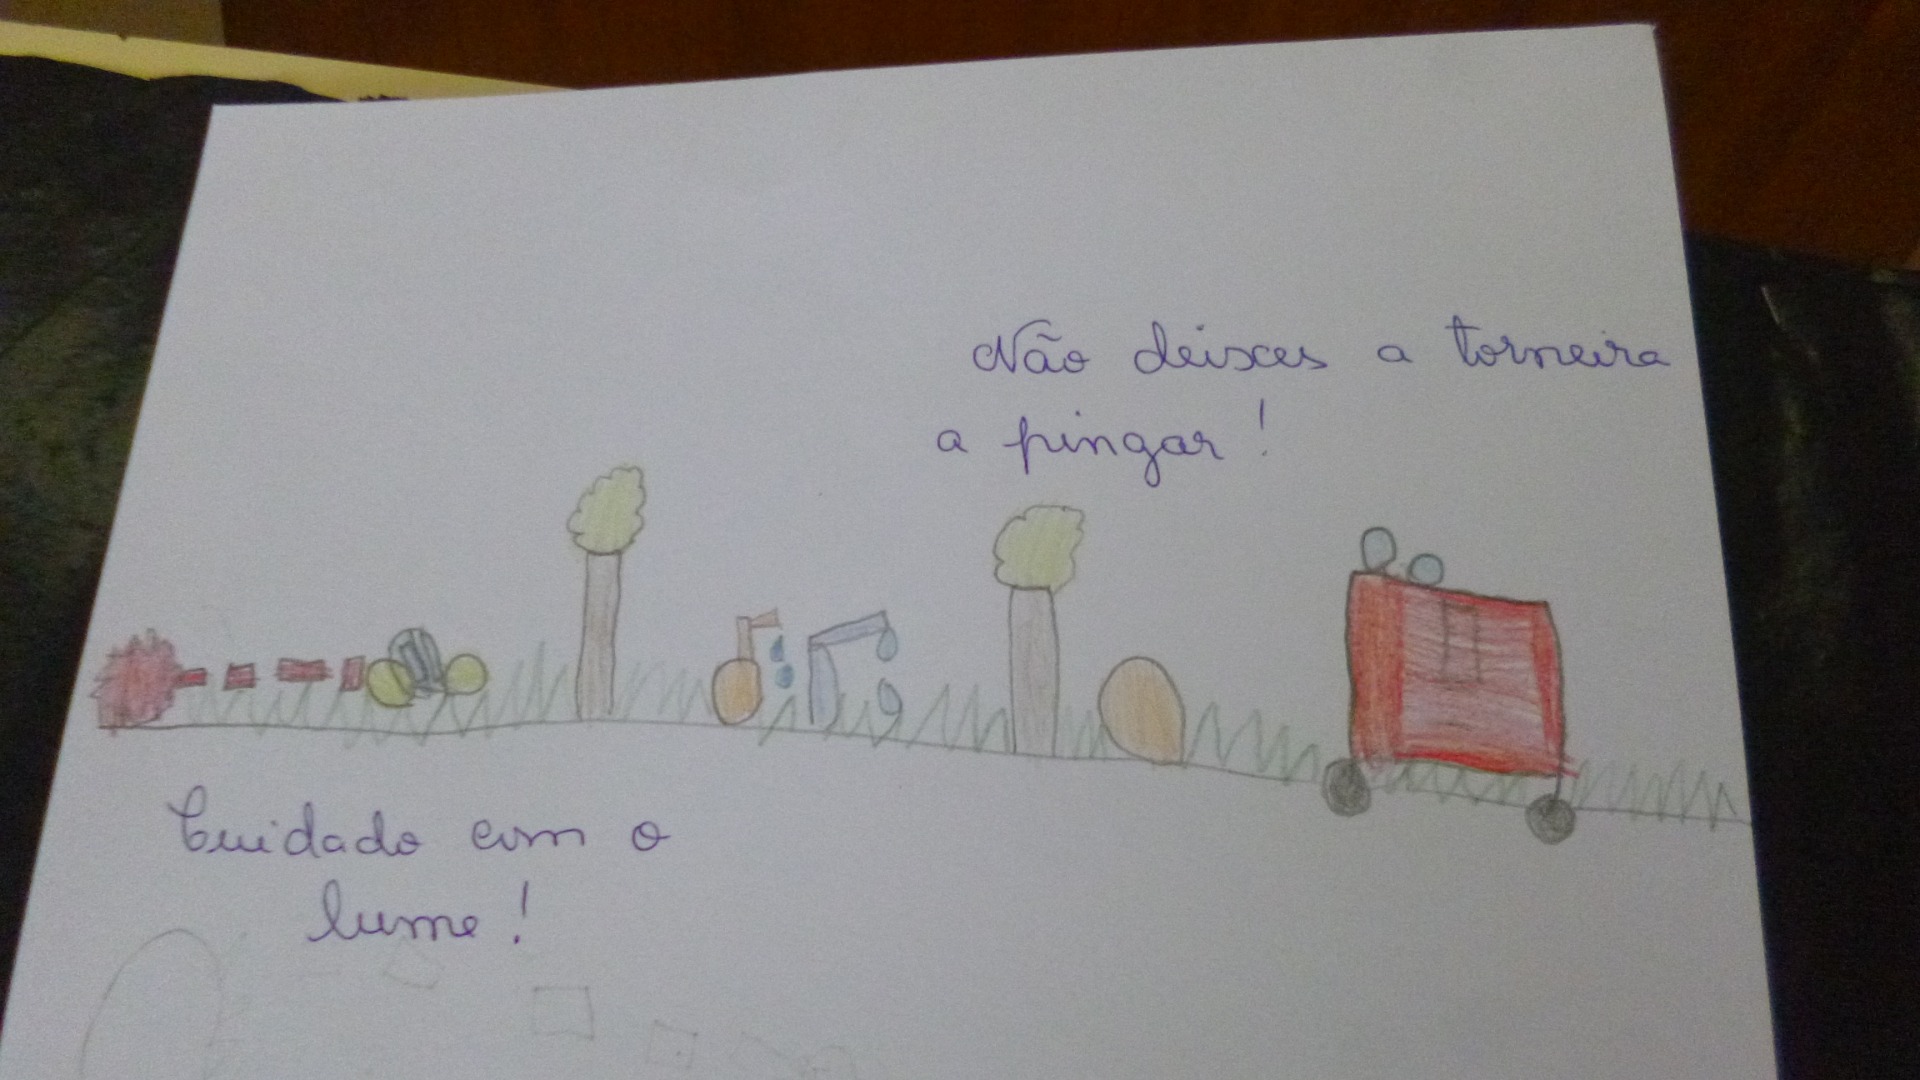 Não deixes a torneira
a pingar!
Cuidado com o
lume!